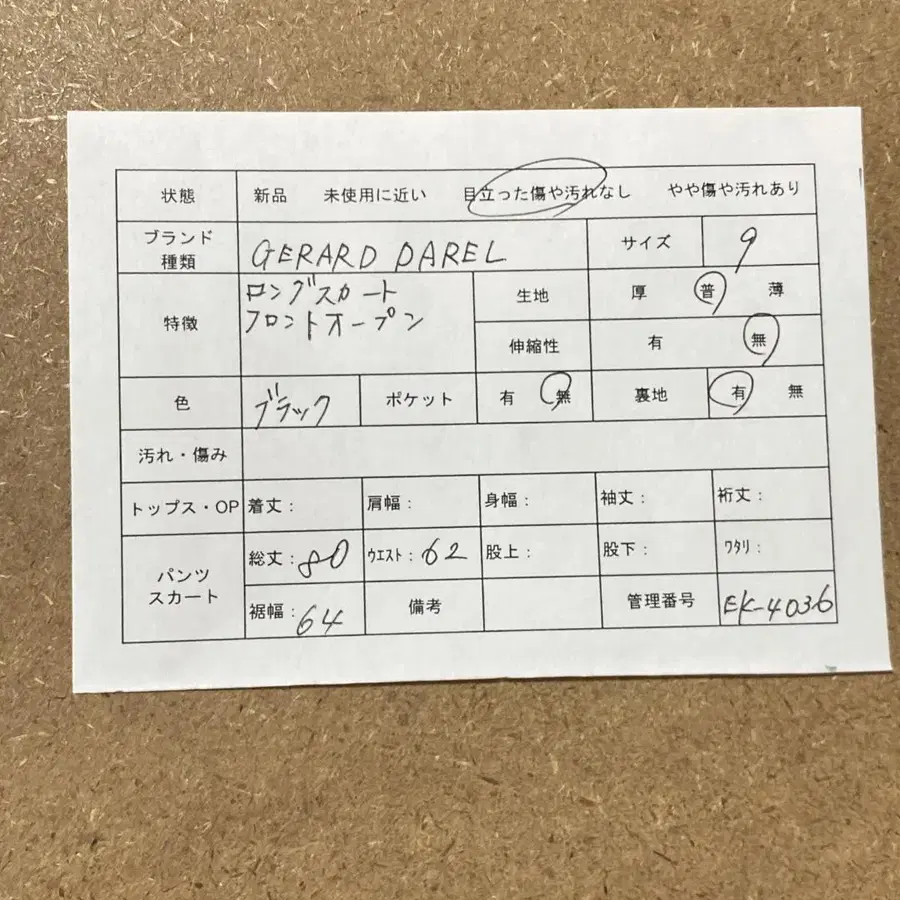 状態 新品 未使用に近い 目立った傷や汚れなし やや傷や汚れあり
ブランド
種類 GERARD DAREL サイズ 9
特徴 ロングスカート
フロントオープン
生地 厚 普 薄
伸縮性 有 無
色 ブラック ポケット 有 無 裏地 有 無
汚れ・傷み
トップス・OP 着丈： 肩幅： 身幅： 袖丈： 裄丈：
パンツ
スカート
総丈：80 ウエスト：62 股上： 股下： ワタリ：
裾幅：64 備考 管理番号 EK-4036